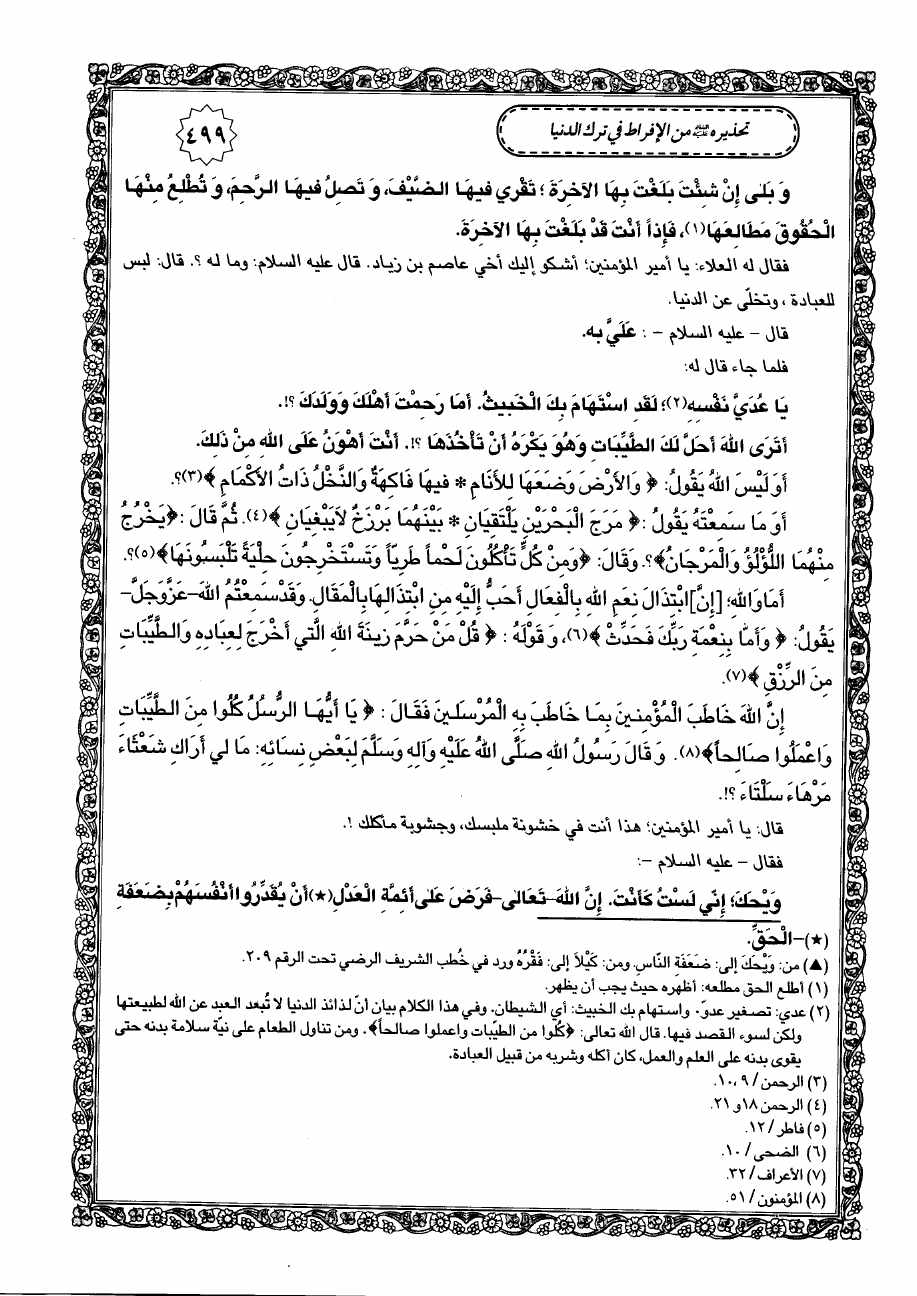 تحذيره عليه السلام من الإفراط في ترك الدنيا
٤٩٩
وَ بَلٰى إِنْ شِئْتَ بَلَغْتَ بِهَا الآخِرَةَ ؛ تَقْرِي فيهَا الضَّيْفَ، وَ تَصِلُ فيهَا الرَّحِمَ، وَ تُطْلِعُ مِنْهَا
الْحُقُوقَ مَطَالِعَهَا(١)، فَإِذاً أَنْتَ قَدْ بَلَغْتَ بِهَا الآخِرَةَ.
فقال له العلاء: يا أمير المؤمنين؛ أشكو إليك أخي عاصم بن زياد. قال عليه السلام: وما له ؟. قال: لبس
للعبادة ، وتخلّى عن الدنيا.
قال – عليه السلام – : عَلَيَّ بِه.
فلما جاء قال له:
يَا عُدَيَّ نَفْسِهِ(٢)؛ لَقَدِ اسْتَهَامَ بِكَ الْخَبيثُ. أَمَا رَحِمْتَ أَهْلَكَ وَوَلَدَكَ ؟!.
أَتَرَى اللهَ أَحَلَّ لَكَ الطَّيِّبَاتِ وَهُوَ يَكْرَهُ أَنْ تَأْخُذَهَا ؟!. أَنْتَ أَهْوَنُ عَلَى اللهِ مِنْ ذَلِكَ.
أَوَ لَيْسَ اللهُ يَقُولُ: ﴿ وَالأَرْضَ وَضَعَهَا لِلأَنَامِ * فيهَا فَاكِهَةٌ وَالنَّخْلُ ذَاتُ الأَكْمَامِ ﴾(٣)؟.
أَوَ مَا سَمِعْتَهُ يَقُولُ :﴿ مَرَجَ الْبَحْرَيْنِ يَلْتَقِيَانِ * بَيْنَهُمَا بَرْزَخٌ لاَيَبْغِيَانِ ﴾(٤). ثُمَّ قَالَ :﴿يَخْرُجُ
مِنْهُمَا اللُّؤْلُؤُ وَالْمَرْجَانُ﴾؟. وَقَالَ: ﴿وَمِنْ كُلٍّ تَأْكُلُونَ لَحْماً طَرِيّاً وَتَسْتَخْرِجُونَ حِلْيَةً تَلْبَسُونَهَا﴾(٥)؟.
أَمَا وَاللهِ؛ [إِنَّ] ابْتِذَالَ نِعَمِ اللهِ بِالْفَعَالِ أَحَبُّ إِلَيْهِ مِنِ ابْتِذَالِهَا بِالْمَقَالِ. وَقَدْ سَمِعْتُمُ اللهَ–عَزَّ وَجَلَّ–
يَقُولُ: ﴿ وَأَمَّا بِنِعْمَةِ رَبِّكَ فَحَدِّثْ ﴾(٦)، وَ قَوْلَهُ : ﴿ قُلْ مَنْ حَرَّمَ زينَةَ اللهِ الَّتي أَخْرَجَ لِعِبَادِهِ وَالطَّيِّبَاتِ
مِنَ الرِّزْقِ ﴾(٧).
إِنَّ اللهَ خَاطَبَ الْمُؤْمِنينَ بِمَا خَاطَبَ بِهِ الْمُرْسَلينَ فَقَالَ : ﴿ يَا أَيُّهَا الرُّسُلُ كُلُوا مِنَ الطَّيِّبَاتِ
وَاعْمَلُوا صَالِحاً﴾(٨). وَ قَالَ رَسُولُ اللهِ صَلَّى اللهُ عَلَيْهِ وَآلِهِ وَسَلَّمَ لِبَعْضِ نِسَائِهِ: مَا لي أَرَاكِ شَعْثَاءَ
مَرْهَاءَ سَلْتَاءَ ؟!.
قال: يا أمير المؤمنين؛ هذا أنت في خشونة ملبسك، وجشوبة مأكلك !.
فقال – عليه السلام –:
وَيْحَكَ؛ إِنّي لَسْتُ كَأَنْتَ. إِنَّ اللهَ–تَعَالى–فَرَضَ عَلى أَئِمَّةِ الْعَدْلِ(★) أَنْ يُقَدِّرُوا أَنْفُسَهُمْ بِضَعَفَةِ
(★)–الْحَقِّ.
(▲) من: وَيْحَكَ إلى: ضَعَفَةِ النَّاسِ. ومن: كَيْلاَ إلى: فَقْرُهُ ورد في خُطب الشريف الرضي تحت الرقم ٢٠٩.
(١) أطلع الحق مطلعه: أظهره حيث يجب أن يظهر.
(٢) عدي: تصغير عدوّ. واستهام بك الخبيث: أي الشيطان. وفي هذا الكلام بيان أنّ لذائذ الدنيا لا تُبعد العبد عن الله لطبيعتها
ولكن لسوء القصد فيها. قال الله تعالى: ﴿كُلُوا من الطيّبات واعملوا صالحاً﴾. ومن تناول الطعام على نيّة سلامة بدنه حتى
يقوى بدنه على العلم والعمل، كان أكله وشربه من قبيل العبادة.
(٣) الرحمن / ٩ ،١٠.
(٤) الرحمن ١٨ و ٢١.
(٥) فاطر / ١٢.
(٦) الضحى / ١٠.
(٧) الأعراف / ٣٢.
(٨) المؤمنون / ٥١.